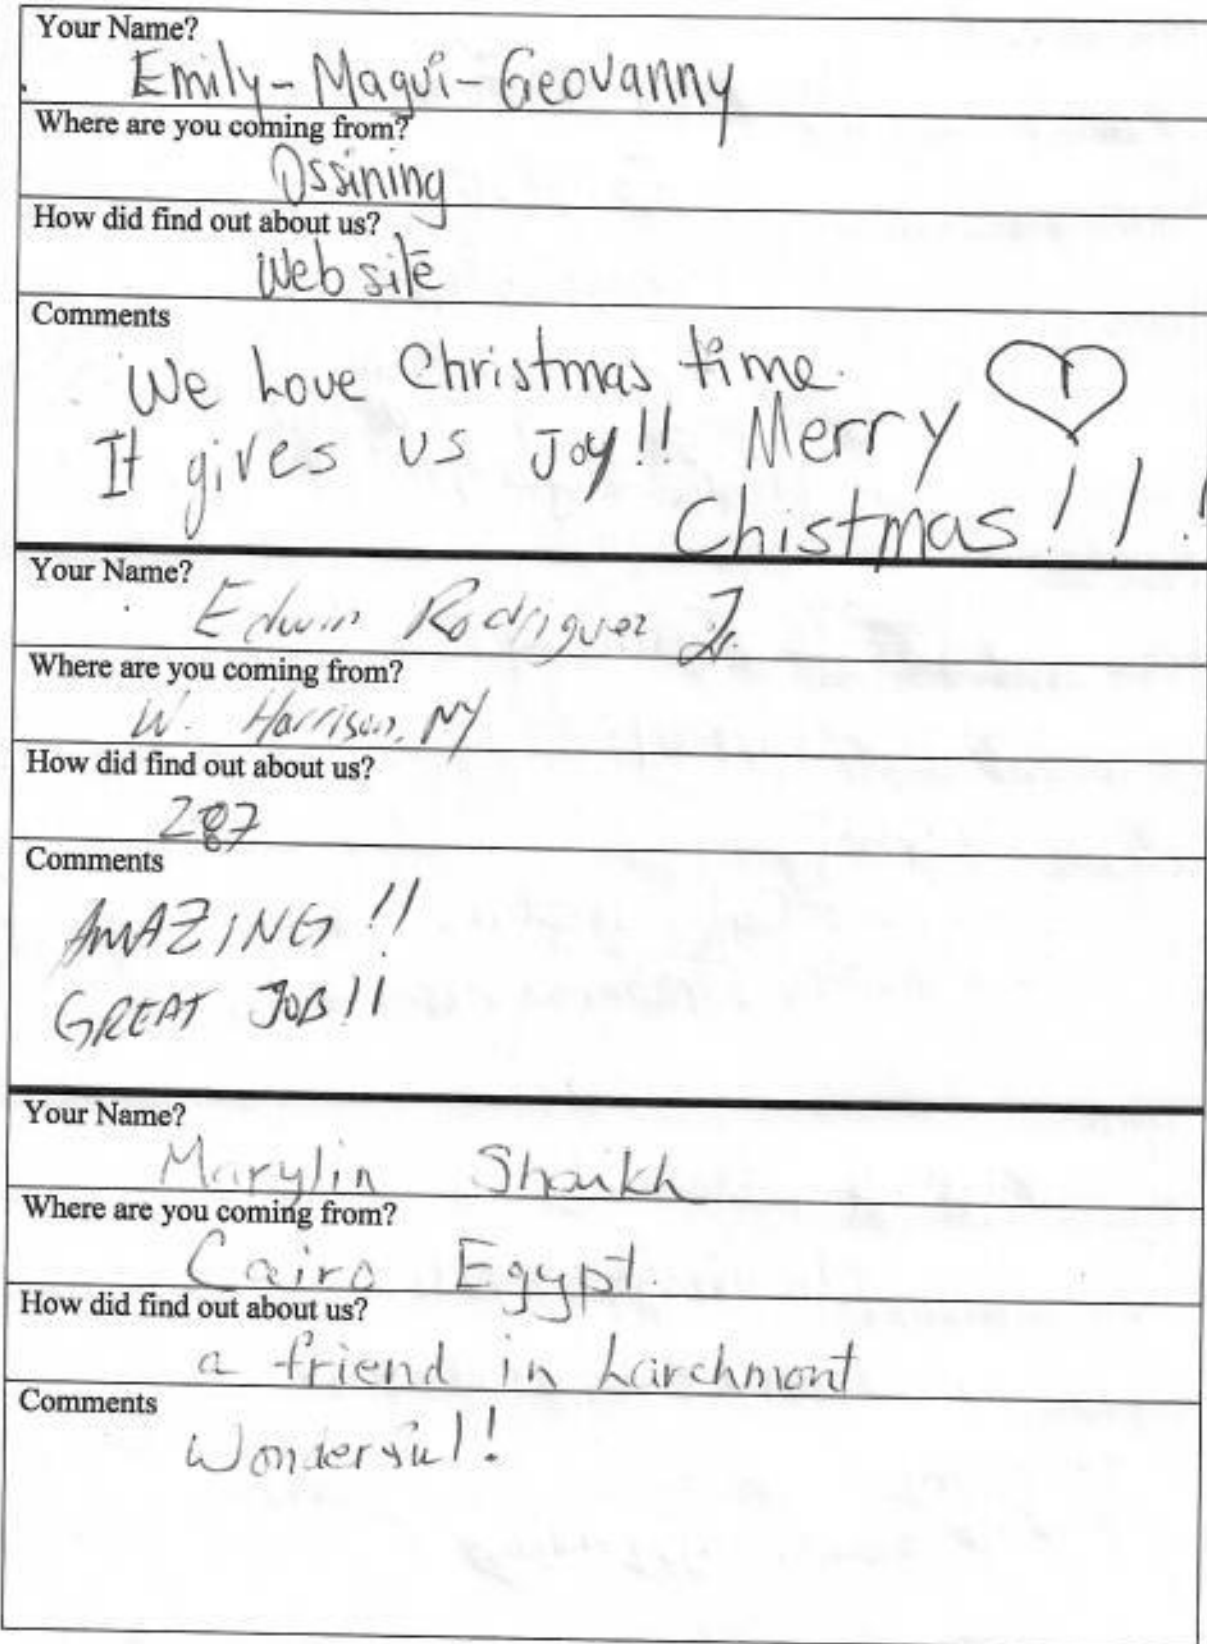 Your Name?
Emily-Magui-Geovanny
Where are you coming from?
Ossining
How did find out about us?
Web site
Comments
We Love Christmas time.
It gives us Joy!! Merry
Chistmas!!!
Your Name?
Edwin Rodriguez Jr.
Where are you coming from?
W. Harrison, NY
How did find out about us?
287
Comments
AMAZING!!
GREAT JOB!!
Your Name?
Marylin Shaikh
Where are you coming from?
Cairo Egypt.
How did find out about us?
a friend in Larchmont
Comments
Wonderful!